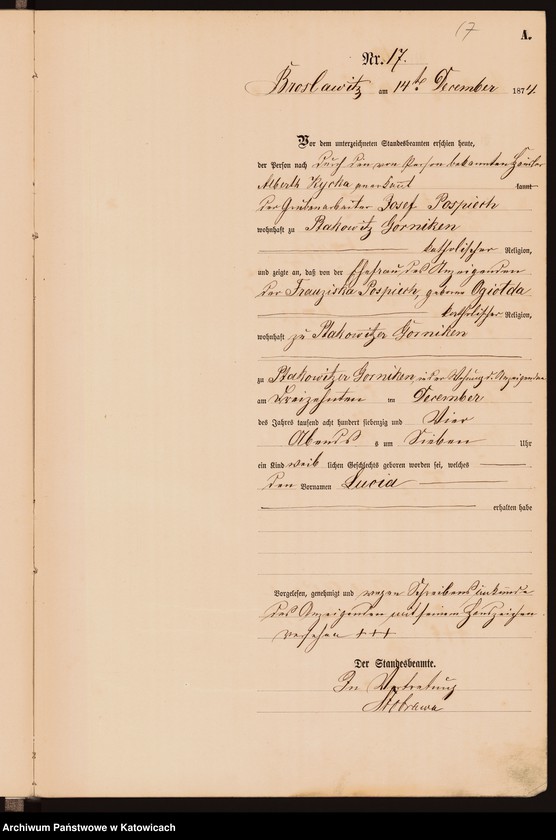 17
A.
Nr. 17.
Broslawitz am 14ten December 1874.
Vor dem unterzeichneten Standesbeamten erschien heute,
der Person nach durch den von Person bekannten
Alberth Kycka anerkannt kannt
der Grubenarbeiter Josef Pospiech
wohnhaft zu Ptakowitz Gorniken
katholischer Religion,
und zeigte an, daß von der Ehefrau des Anzeigenden
der Franziska Pospiech, geborne Ogiolda
katholischer Religion,
wohnhaft zu Ptakowitzer Gorniken
zu Ptakowitzer Gorniken, in der Wohnung d. Anzeigenden
am Dreizehnten ten December
des Jahres tausend acht hundert siebenzig und Vier
Abends s um Sieben Uhr
ein Kind weib lichen Geschlechts geboren worden sei, welches
den Vornamen Lucia
erhalten habe
Vorgelesen, genehmigt und wegen Schreibensunkunde
des Anzeigenden mit seinem Handzeichen
versehen +++
Der Standesbeamte.
In Vertretung
Archiwum Państwowe w Katowicach